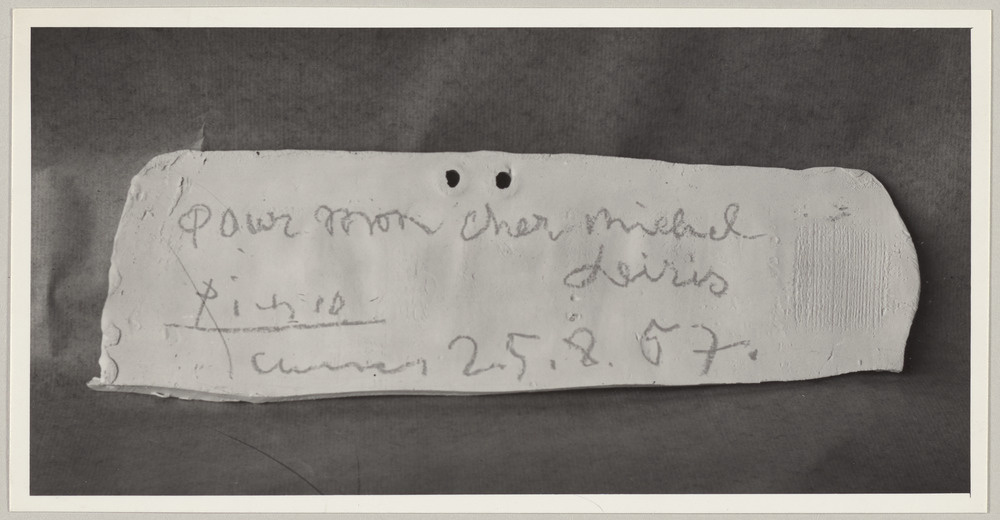 Pour mon cher Michel
Leiris
Picasso
Cannes, 25.8.57.